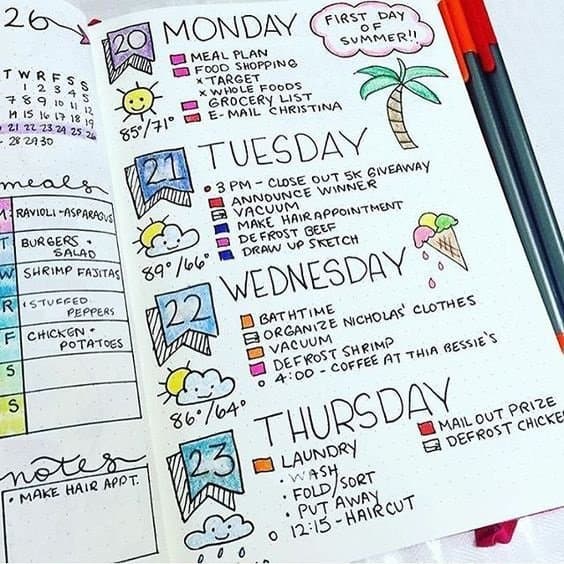 26
T W R F S S
1 2 3 4 5
7 8 9 10 11 12
14 15 16 17 18 19
21 22 23 24 25 26
28 29 30
meals
M RAVIOLI - ASPARAGUS
T BURGERS + SALAD
W SHRIMP FAJITAS
R STUFFED PEPPERS
F CHICKEN + POTATOES
S
S
notes
• MAKE HAIR APPT.
20 MONDAY
FIRST DAY
OF
SUMMER!!
MEAL PLAN
FOOD SHOPPING
x TARGET
x WHOLE FOODS
GROCERY LIST
E-MAIL CHRISTINA
85°/71°
21 TUESDAY
• 3 PM - CLOSE OUT 5K GIVEAWAY
ANNOUNCE WINNER
VACUUM
MAKE HAIR APPOINTMENT
DEFROST BEEF
DRAW UP SKETCH
89°/66°
22 WEDNESDAY
BATHTIME
ORGANIZE NICHOLAS' CLOTHES
VACUUM
DEFROST SHRIMP
○ 4:00 - COFFEE AT THIA BESSIE'S
86°/64°
23 THURSDAY
LAUNDRY
• WASH
• FOLD/SORT
• PUT AWAY
○ 12:15 - HAIRCUT
MAIL OUT PRIZE
DEFROST